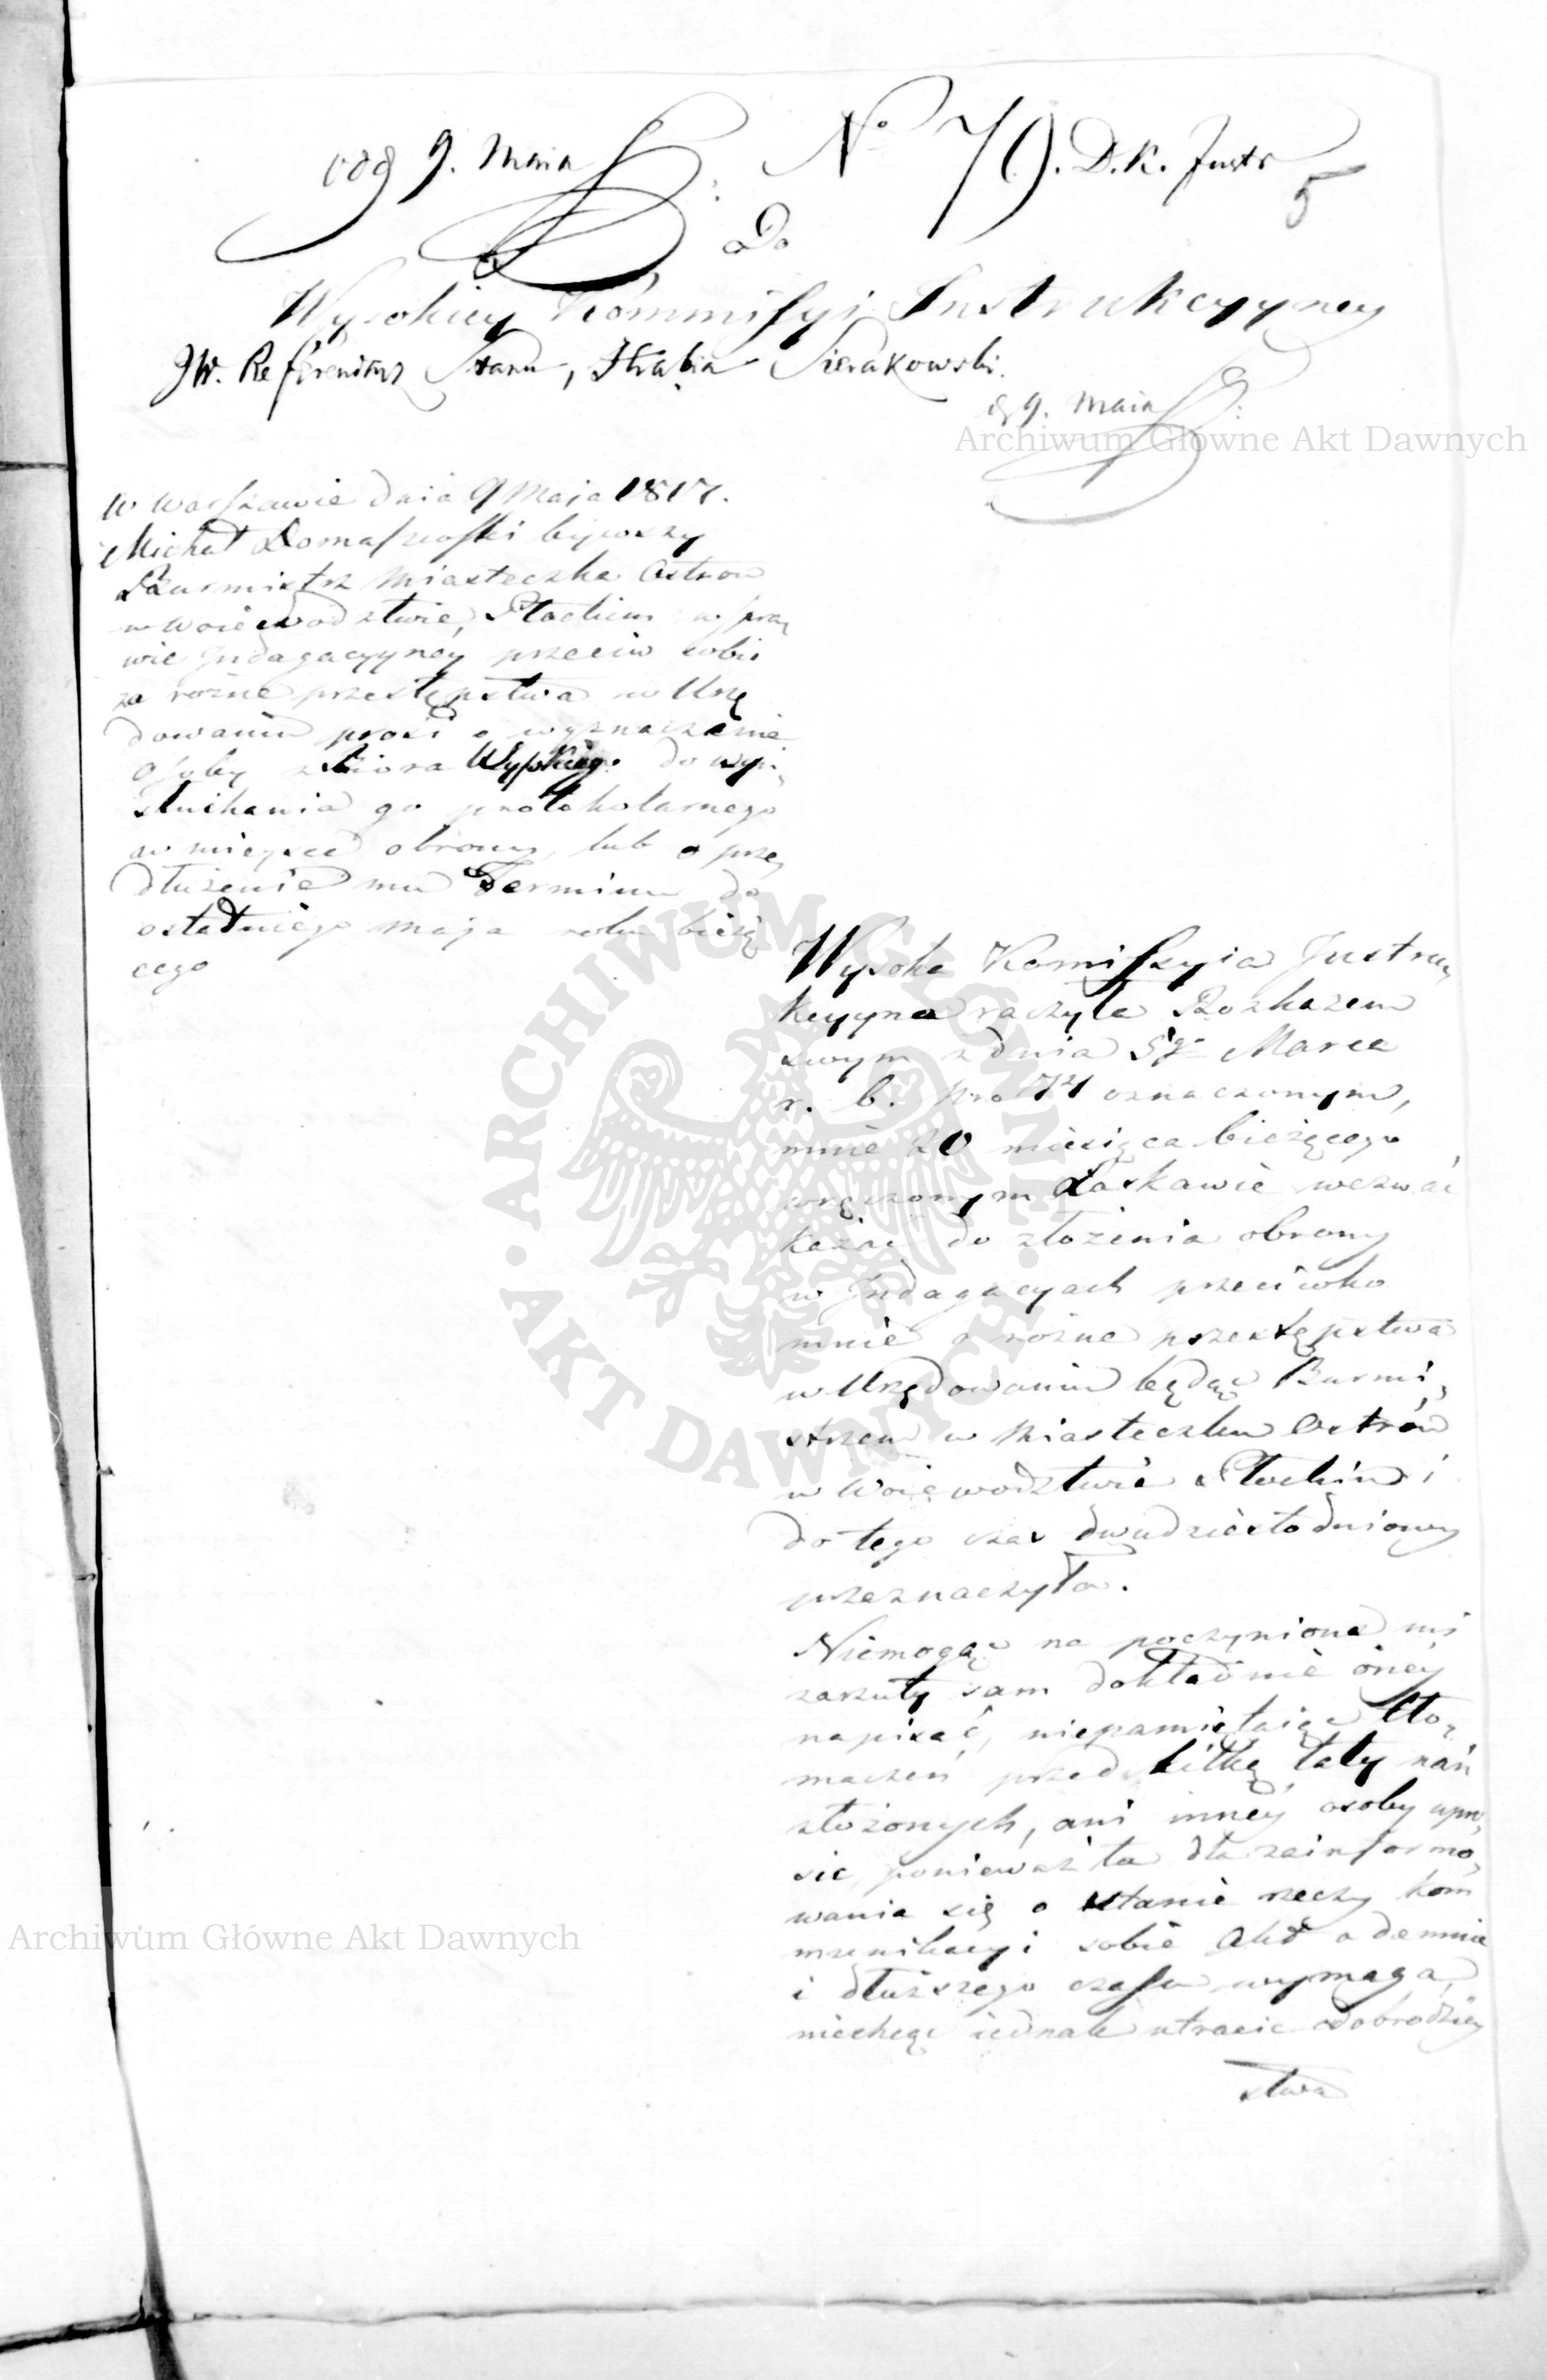 9. Maia
No 79. D. K. Instr
5
Do
Wysokiey Kommissyi Instrukcyyney
JW. Referendarz Stanu, Hrabia Sierakowski.
9. Maia
Archiwum Główne Akt Dawnych
W Warszawie dnia 9 Maja 1817.
Michał Domaszewski bywszy
Burmistrz Miasteczka Ostrow
w Woiewodztwie Płockim w spra,
wie Indagacyyney przeciw sobie
za rożne przestępstwa w Urzę
dowaniu prosi o wyznaczenie
Osoby z Biora do wy,
słuchania go protokolarnego
w mieysce obrony, lub o prze,
dłużenie mu Terminu do
ostatniego Maja roku bieżą
cego
Wysoka Komissyia Instru,
kcyyna raczyła Rozkazem
swym z dnia 5go Marca
r. b. Nro 74 oznaczonym,
mnie 20 miesiąca bieżącego
wręczonym Łaskawie wezwać
każąc do złożenia obrony
w Indagacyach przeciwko
mnie o rożne przestępstwa
w Urzędowaniu będąc Burmi,
strzem w Miasteczku Ostrów
w Woiewodztwie Płockim i
do tego czas dwudziestodniowy
przeznaczyła.
Niemogąc na poczynione mi
zarzuty sam dokładnie oney
napisać, niepamiętaiąc tło,
maczeń przed kilką laty nań
złożonych, ani inney osoby upro,
sić ponieważ ta dla zainformo,
wania się o stanie rzeczy kom
munikacyi sobie Akt odemnie
i dłuższego czasu wymaga,
niechcąc iednak utracic dobrodziey
stwa
Archiwum Główne Akt Dawnych
ARCHIWUM GŁÓWNE • AKT DAWNYCH •